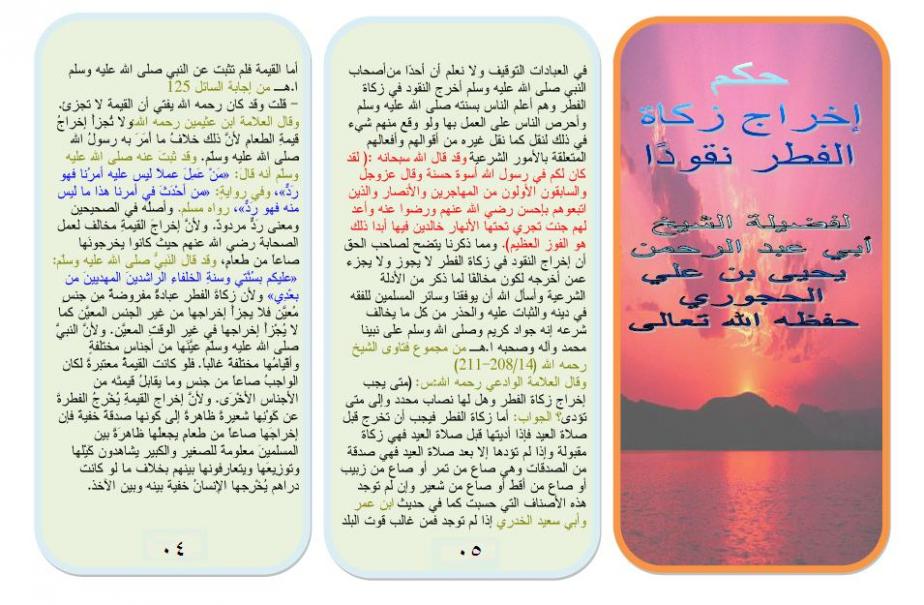 حكم
إخراج زكاة
الفطر نقودًا
لفضيلة الشيخ
أبي عبد الرحمن
يحيى بن علي
الحجوري
حفظه الله تعالى
في العبادات التوقيف ولا نعلم أن أحدًا من أصحاب
النبي صلى الله عليه وسلم أخرج النقود في زكاة
الفطر وهم أعلم الناس بسنته صلى الله عليه وسلم
وأحرص الناس على العمل بها ولو وقع منهم شيء
في ذلك لنقل كما نقل غيره من أقوالهم وأفعالهم
المتعلقة بالأمور الشرعية وقد قال الله سبحانه :( لقد
كان لكم في رسول الله أسوة حسنة وقال عزوجل
والسابقون الأولون من المهاجرين والأنصار والذين
اتبعوهم بإحسن رضي الله عنهم ورضوا عنه وأعد
لهم جنت تجري تحتها الأنهار خالدين فيها أبدا ذلك
هو الفوز العظيم). ومما ذكرنا يتضح لصاحب الحق
أن إخراج النقود في زكاة الفطر لا يجوز ولا يجزء
عمن أخرجه لكون مخالفا لما ذكر من الأدلة
الشرعية وأسأل الله أن يوفقنا وسائر المسلمين للفقه
في دينه والثبات عليه والحذر من كل ما يخالف
شرعه إنه جواد كريم وصلى الله وسلم على نبينا
محمد وآله وصحبه اـهـ من مجموع فتاوى الشيخ
رحمه الله (208/14–211)
وقال العلامة الوادعي رحمه الله:س: (متى يجب
إخراج زكاة الفطر وهل لها نصاب محدد وإلى متى
تؤدى؟ الجواب: أما زكاة الفطر فيجب أن تخرج قبل
صلاة العيد فإذا أديتها قبل صلاة العيد فهي زكاة
مقبولة وإذا لم تؤدها إلا بعد صلاة العيد فهي صدقة
من الصدقات وهي صاع من تمر أو صاع من زبيب
أو صاع من أقط أو صاع من شعير وإن لم توجد
هذه الأصناف التي حسبت كما في حديث ابن عمر
وأبي سعيد الخدري إذا لم توجد فمن غالب قوت البلد
٠٥
أما القيمة فلم تثبت عن النبي صلى الله عليه وسلم
ا.هـ من إجابة السائل 125
– قلت وقد كان رحمه الله يفتي أن القيمة لا تجزئ.
وقال العلامة ابن عثيمين رحمه الله:ولا تُجزأ إخراجُ
قيمةِ الطعام لأنَّ ذلك خلافُ ما أمَرَ به رسولُ الله
صلى الله عليه وسلم. وقد ثبتَ عنه صلى الله عليه
وسلم أنه قال: «مَنْ عَمِلَ عملا ليس عليه أمرُنا فهو
ردٌّ»، وفي روايةٍ: «من أحْدَثَ في أمرنا هذا ما ليس
منه فهو ردٌّ»، رواه مسلم. وأصلُه في الصحيحين
ومعنى ردٌّ مردودٌ. ولأنَّ إخراجَ القيمةِ مخالف لعمل
الصحابة رضي الله عنهم حيث كانوا يخرجونَها
صاعا من طعامٍ، وقد قال النبيُّ صلى الله عليه وسلم:
«عليكم بسُنَّتي وسنةِ الخلفاءِ الراشدينَ المهديينَ من
بعدِي» ولأن زكاةَ الفطرِ عبادةٌ مفروضةٌ من جنسٍ
مُعيَّن فلا يجزأ إخراجها من غير الجنس المعيَّن كما
لا يُجْزأ إخراجها في غير الوقتِ المعيَّنِ. ولأنَّ النبيَّ
صلى الله عليه وسلم عيَّنَها من أجناسٍ مختلفةٍ
وأقيامُها مختلفةٌ غالباً. فلو كانت القيمةُ معتبرةً لكان
الواجبُ صاعاً من جنسٍ وما يقابلُ قيمتَه من
الأجناس الأخْرَى. ولأنَّ إخراجَ القيمةِ يُخْرِجُ الفطرةَ
عن كَوْنِها شعيرةً ظاهرةً إلى كونها صدقة خفية فإن
إخراجَها صاعاً من طعامٍ يجعلها ظاهرَةً بين
المسلمينَ معلومة للصغير والكبير يشاهدون كَيْلَها
وتوزيعَها ويتعارفونها بينهم بخلاف ما لو كانت
دراهم يُخْرِجها الإنسانُ خفية بينه وبين الآخذ.
٠٤